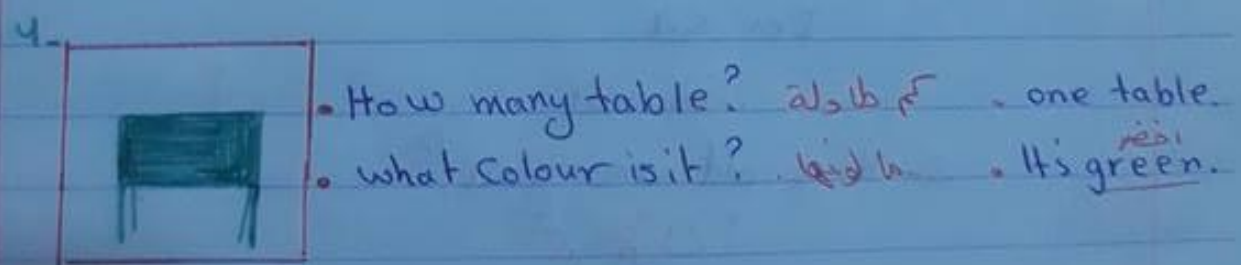 4-
• How many table? كم طاولة . one table.
• what Colour is it? ما لونها . It's green.
اخضر